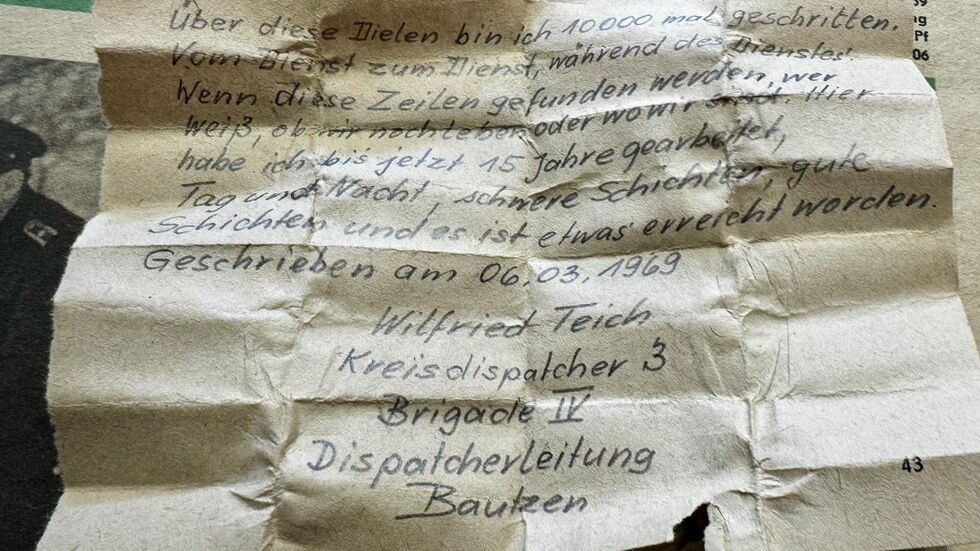 Über diese Dielen bin ich 10000 mal geschritten.
Vom Dienst zum Dienst, während des Dienstes!
Wenn diese Zeilen gefunden werden, wer
weiß, ob wir noch leben oder wo wir sind. Hier
habe ich bis jetzt 15 Jahre gearbeitet,
Tag und Nacht, schwere Schichten, gute
Schichten und es ist etwas erreicht worden.
Geschrieben am 06.03.1969
Wilfried Teich
Kreisdispatcher 3
Brigade IV
Dispatcherleitung
Bautzen
43
39
ng
Pf
06